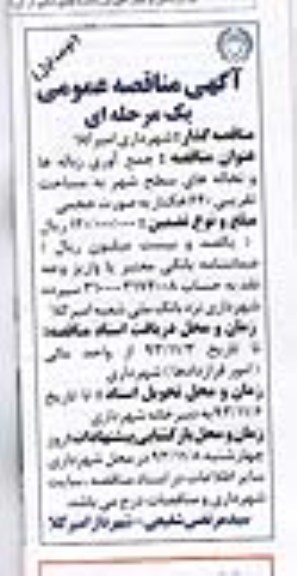 (نوبت اول)
آگهی مناقصه عمومی
یک مرحله ای
مناقصه گذار: شهرداری امیرکلا
عنوان مناقصه: جمع آوری زباله ها
و نخاله های سطح شهر به مساحت
تقریبی ۶۴۰ هکتار به صورت حجمی
مبلغ و نوع تضمین: ۱۲۰/۰۰۰/۰۰۰ ریال
( یکصد و بیست میلیون ریال )
ضمانتنامه بانکی معتبر یا واریز وجه
نقد به حساب سپرده
شهرداری نزد بانک ملی شعبه امیرکلا
زمان و محل دریافت اسناد مناقصه:
تا تاریخ ۹۳/۱۱/۳ از واحد مالی
(امور قراردادها) شهرداری
زمان و محل تحویل اسناد: تا تاریخ
۹۳/۱۱/۶ به دبیرخانه شهرداری
زمان و محل بازگشایی پیشنهادات: روز
چهارشنبه ۹۳/۱۱/۸ در محل شهرداری
سایر اطلاعات در اسناد مناقصه، سایت
شهرداری و مناقصات درج می باشد.
سید مرتضی شفیعی - شهردار امیرکلا